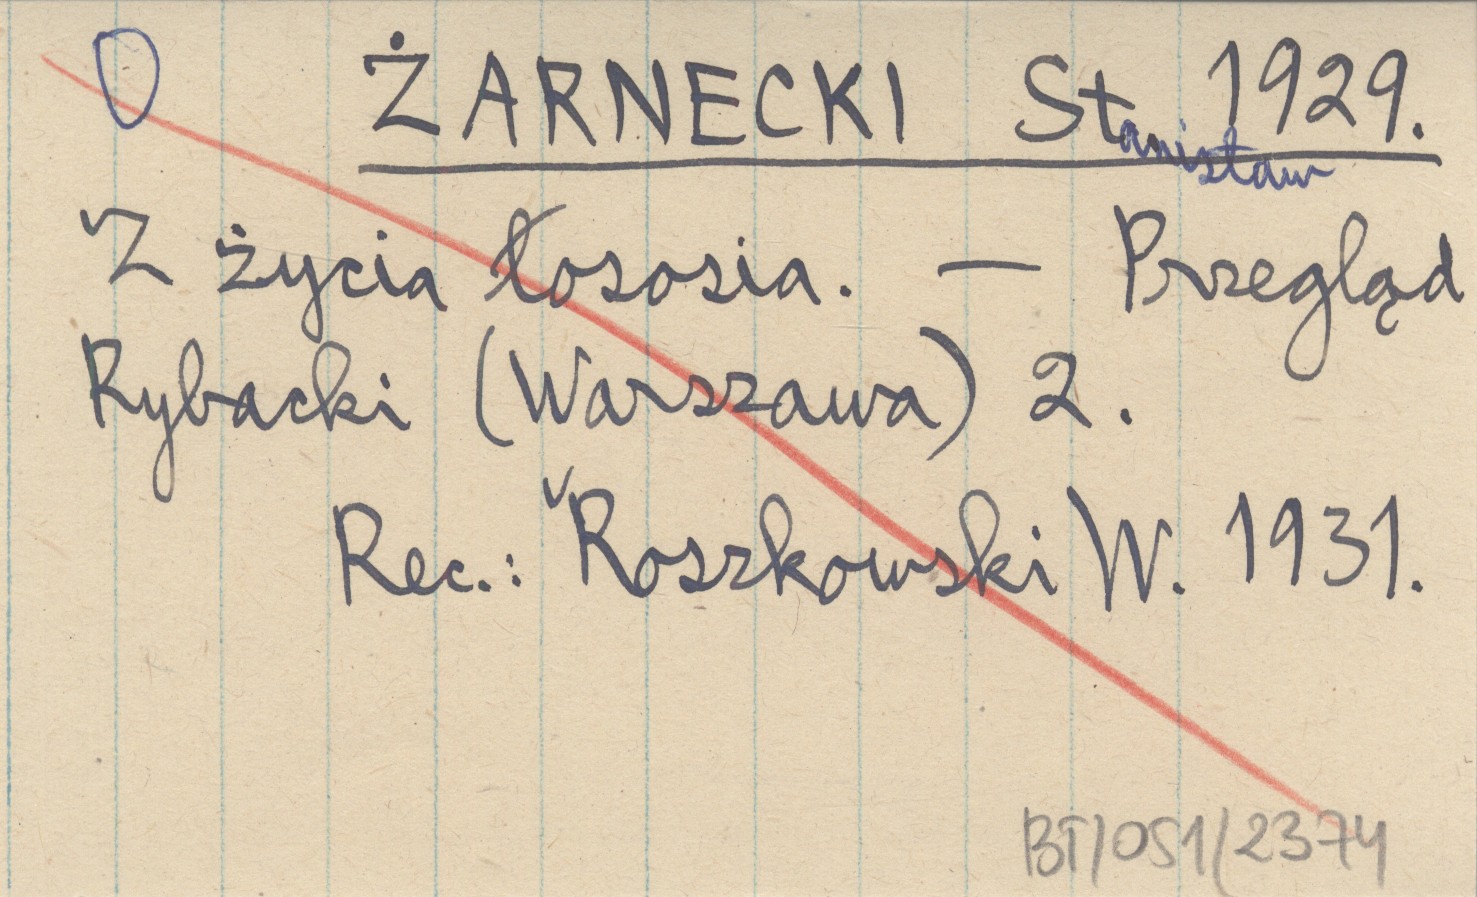 O ŻARNECKI Stanisław 1929.
Z życia łososia. — Przegląd
Rybacki (Warszawa) 2.
Rec.: Roszkowski W. 1931.
BT/OS1/2374